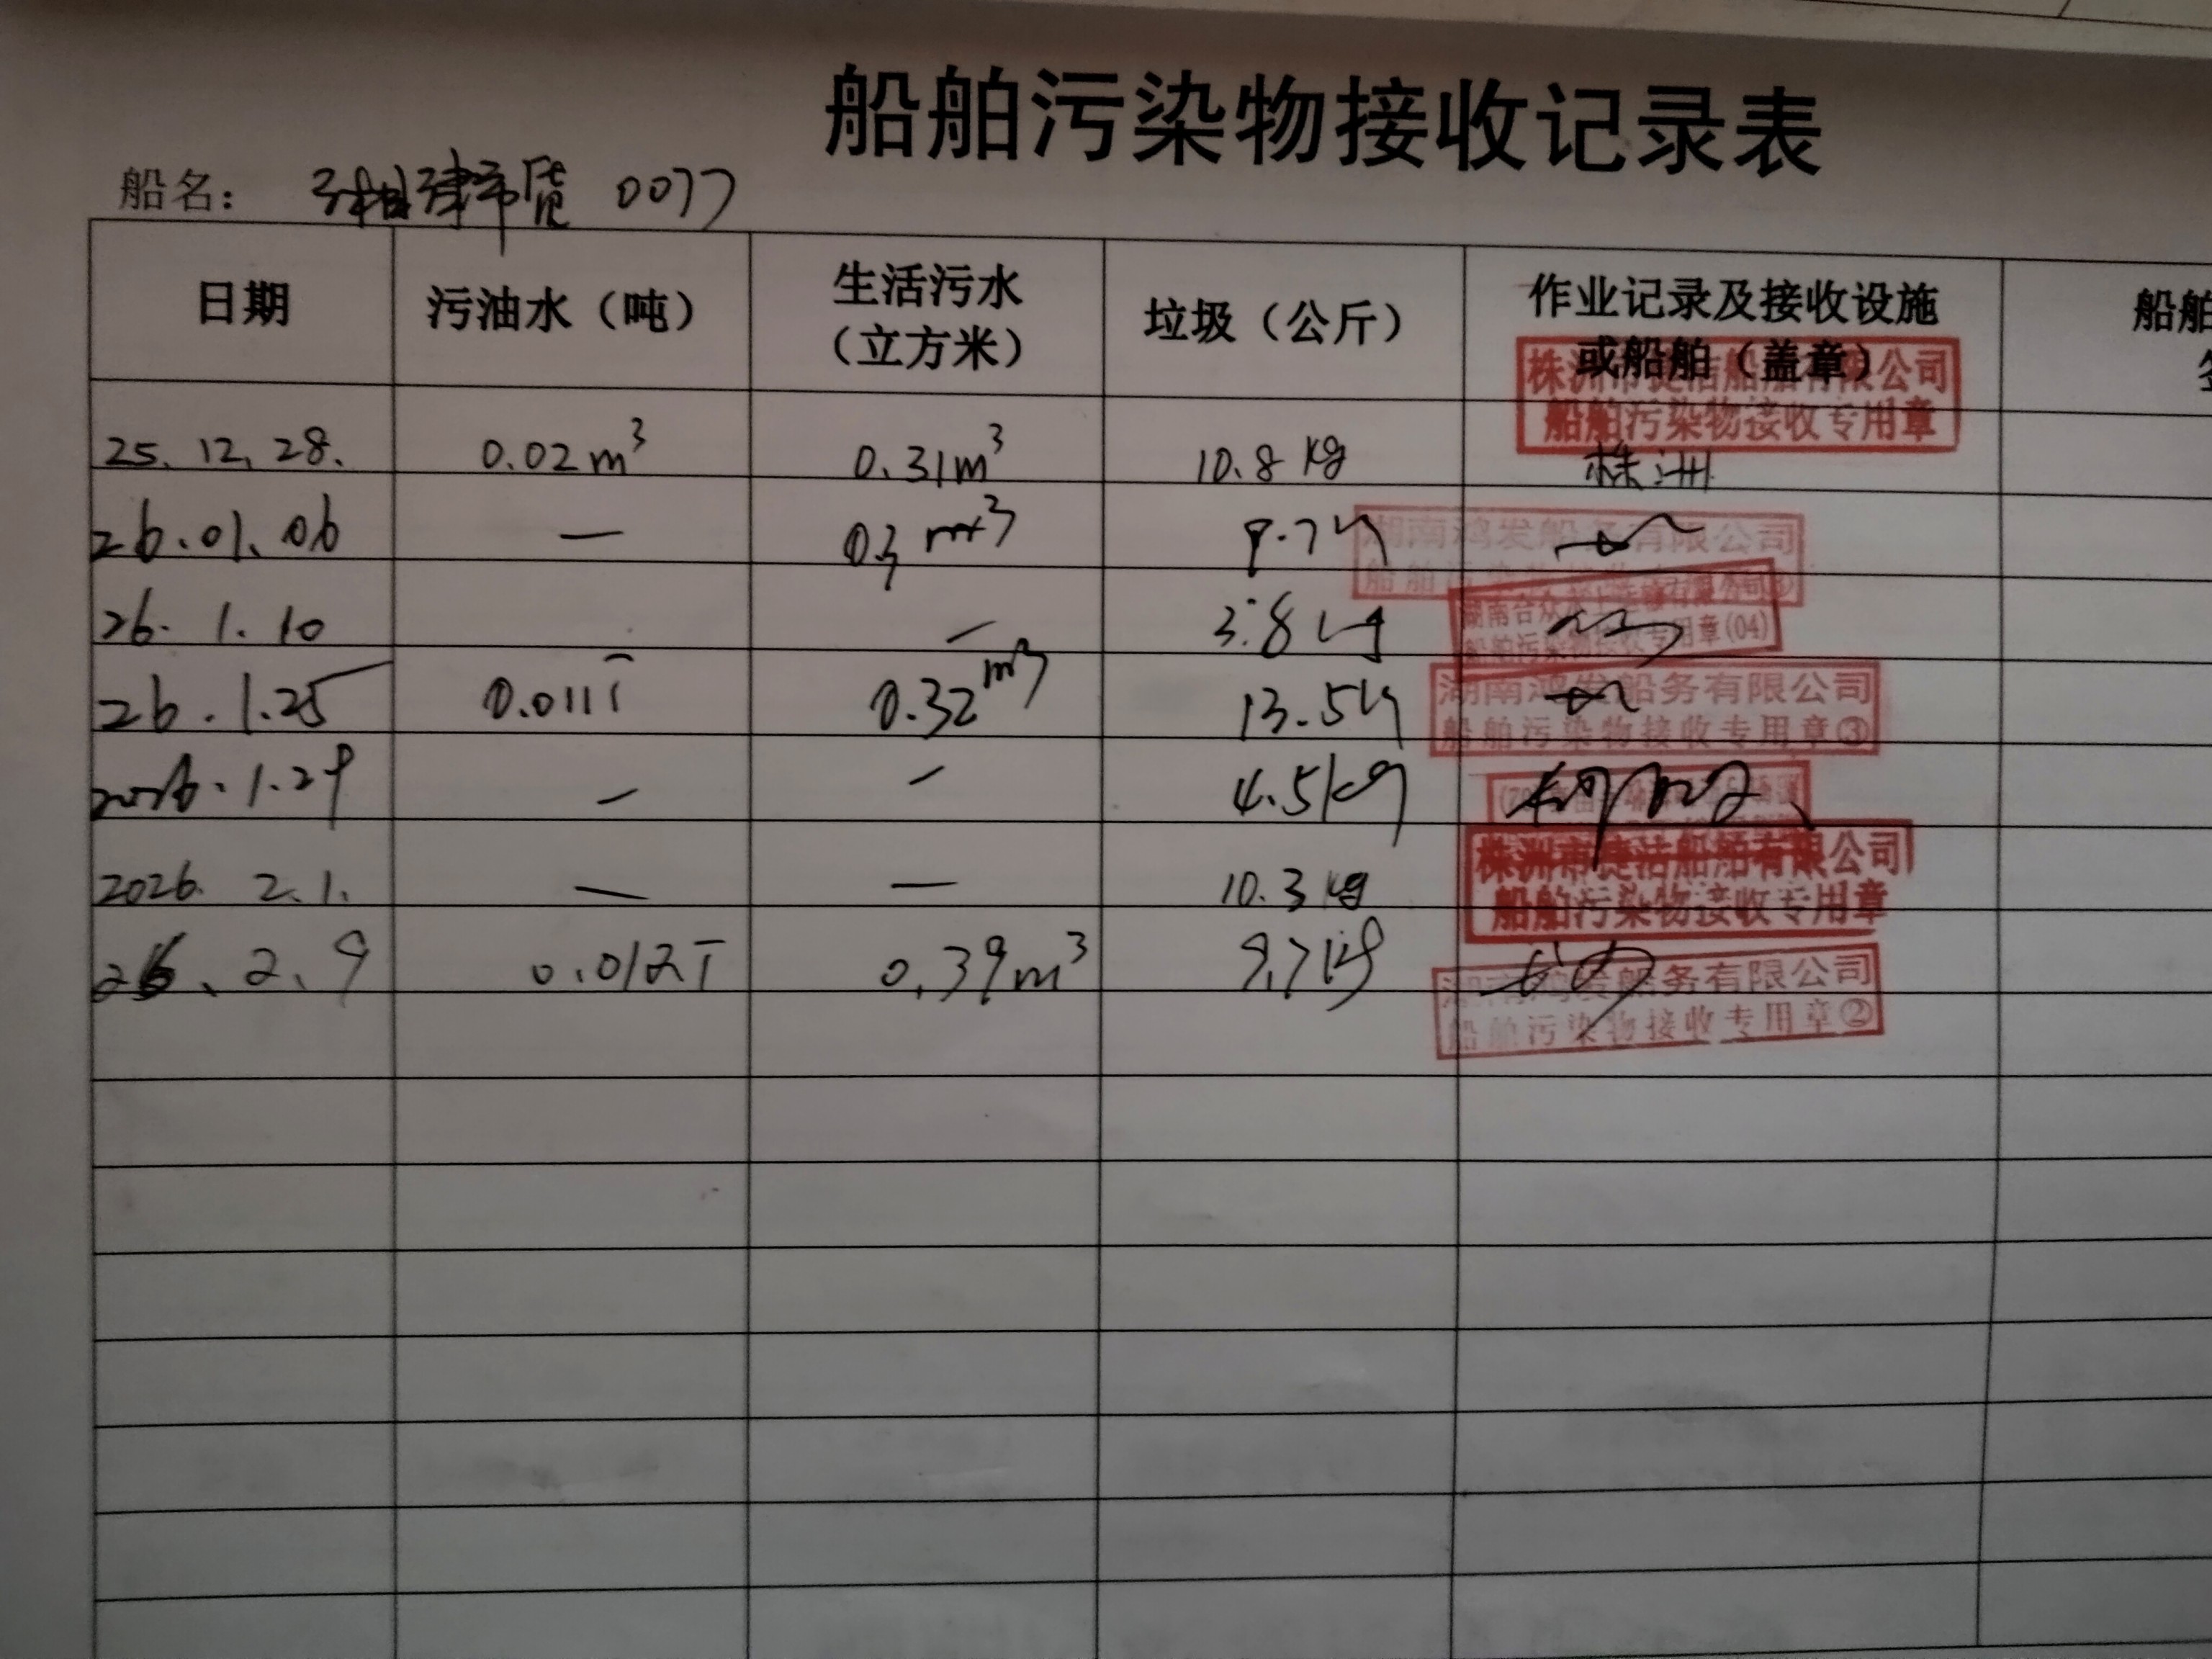 船舶污染物接收记录表
船名： 湘津市货 0077
日期 污油水（吨） 生活污水（立方米） 垃圾（公斤） 作业记录及接收设施或船舶（盖章） 船舶
株洲市捷洁船舶有限公司
船舶污染物接收专用章
25.12.28. 0.02m³ 0.31m³ 10.8kg 株洲
26.01.06 — 0.3m³ 9.7kg
湖南鸿发船务有限公司
26.1.10 — 3.8kg
船舶污染物接收专用章(04)
26.1.25 0.011T 0.32m³ 13.5kg
湖南鸿发船务有限公司
船舶污染物接收专用章③
2026.1.29 — — 4.5kg
2026.2.1. — — 10.3kg
株洲市捷洁船舶有限公司
船舶污染物接收专用章
26.2.9 0.012T 0.39m³ 9.7kg
湖南鸿发船务有限公司
船舶污染物接收专用章②